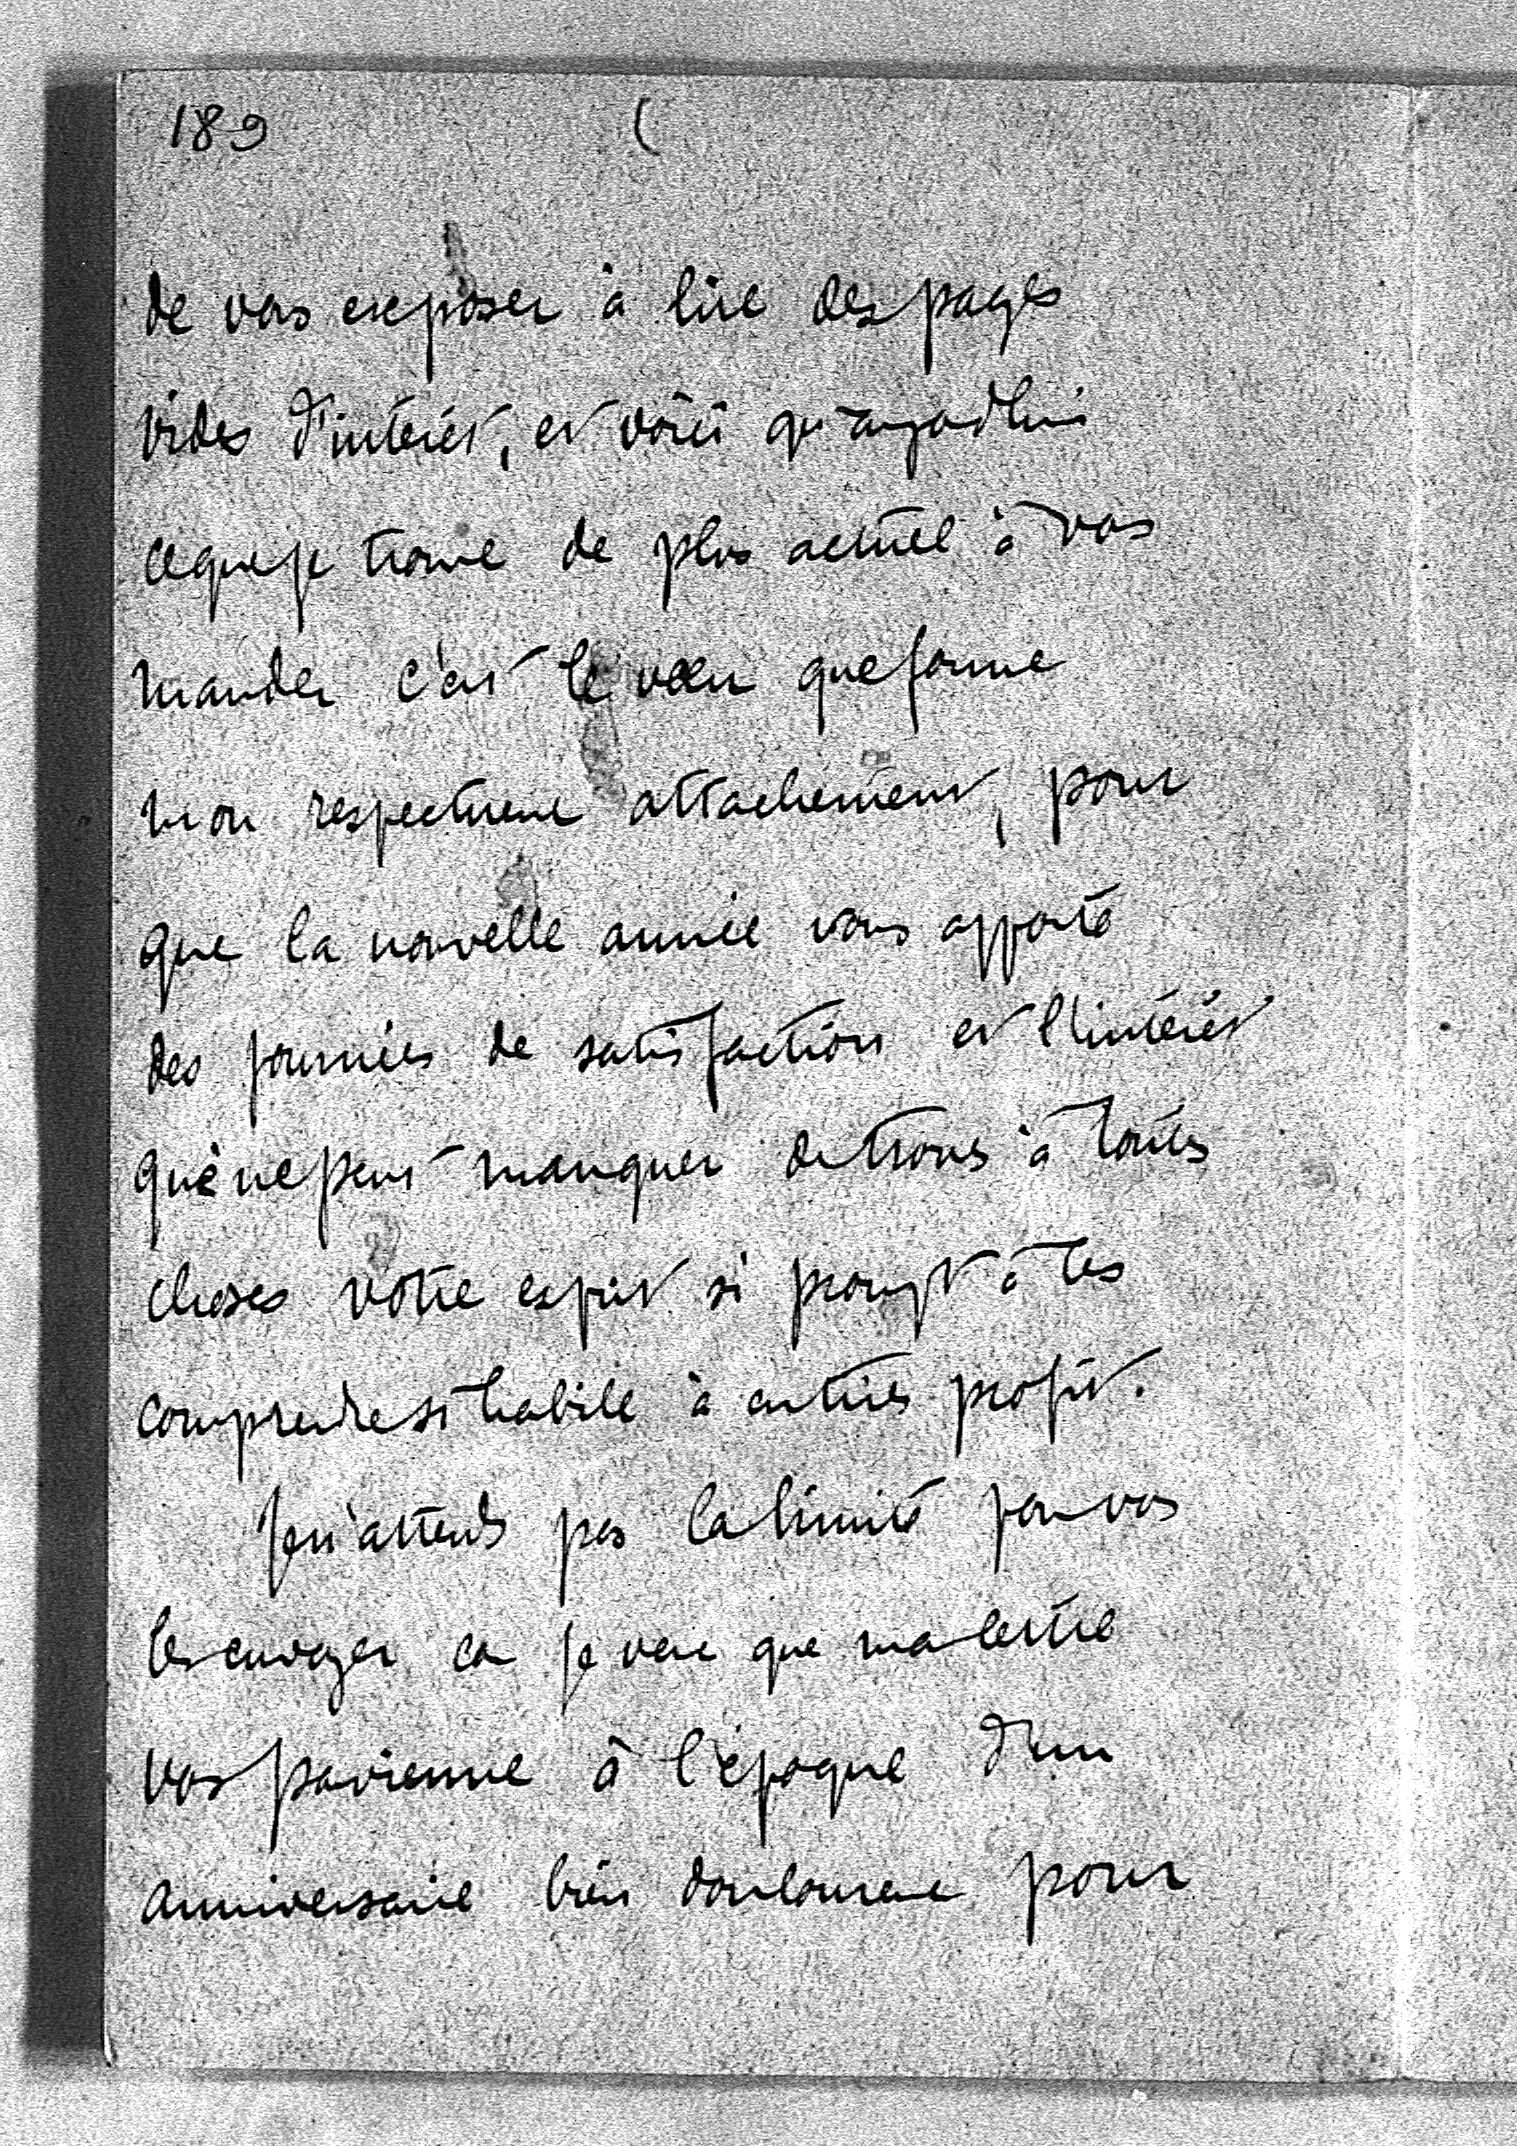 189 (
de vous exposer à lire des pages
vides d'intérêt, et voici qu'aujourd'hui
ce que je trouve de plus actuel à vous
mander c'est le vœu que forme
mon respectueux attachement, pour
que la nouvelle année vous apporte
des journées de satisfaction et l'intérêt
que ne peut manquer de trouver à toutes
choses votre esprit si prompt à les
comprendre si habile à en tirer profit.
Je n'attends pas la limite pour vous
les envoyer car je veux que ma lettre
vous parvienne à l'époque d'un
anniversaire bien douloureux pour